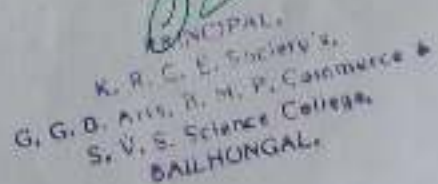 PRINCIPAL,
K. R. C. E. Society's,
G. G. D. Arts, B. M. P. Commerce &
S. V. S. Science College,
BAILHONGAL.